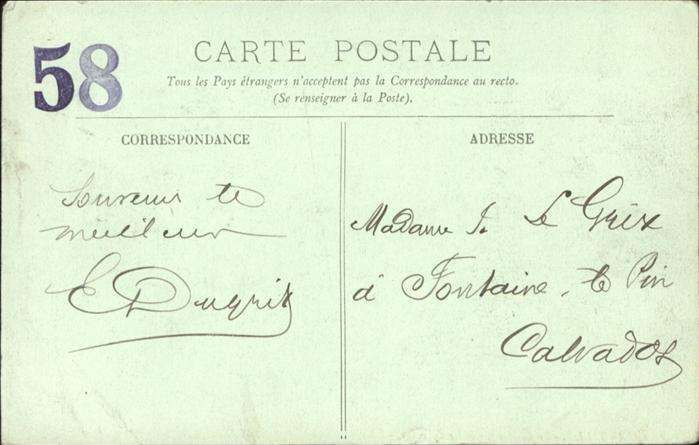 58
CARTE POSTALE
Tous les Pays étrangers n'acceptent pas la Correspondance au recto.
(Se renseigner à la Poste).
CORRESPONDANCE
ADRESSE
Souvenir
meilleur
E Dugrix
Madame J. Le Grix
à Fontaine le Pin
Calvados